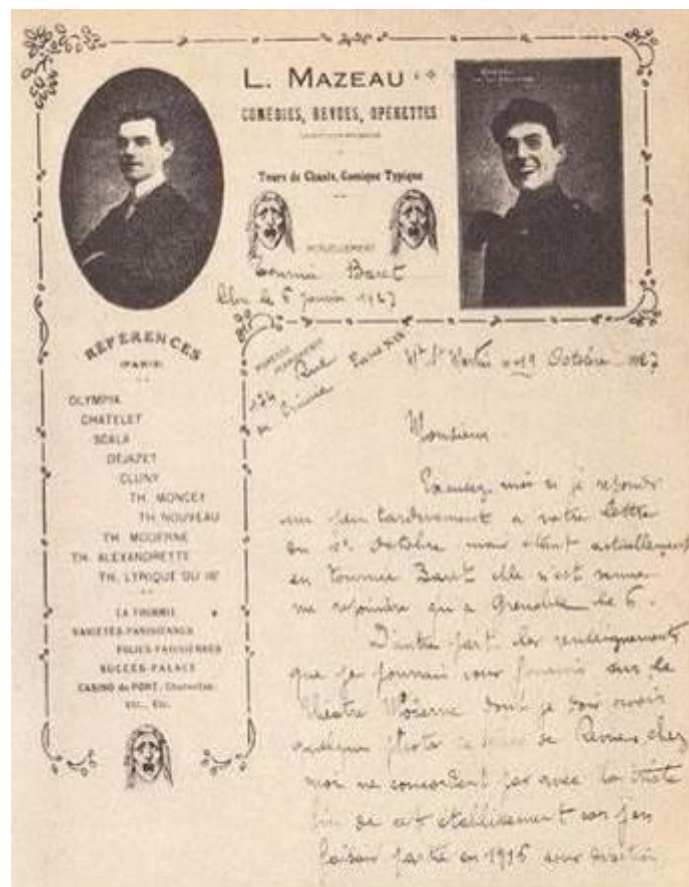 L. MAZEAU
COMÉDIES, REVUES, OPÉRETTES
Tours de Chants, Comique Typique
ACTUELLEMENT
Tournée Baret
libre le 6 janvier 1927
RÉFÉRENCES
(PARIS)
OLYMPIA
CHATELET
SCALA
DÉJAZET
CLUNY
TH. MONCEY
TH. NOUVEAU
TH. MODERNE
TH. ALEXANDRETTE
TH. LYRIQUE DU
LA FOURMIE
VARIÉTÉS-PARISIENNES
FOLIES-PARISIENNES
SUCCÈS-PALACE
CASINO de PONT, Charenton
Etc., Etc.
ADRESSE PERMANENTE
174 Rue Paris XIX
de Crimée
19 Octobre
Monsieur
Excusez moi si je réponds
un peu tardivement à votre lettre
du Octobre mais étant actuellement
en tournée Baret elle n'est venue
me rejoindre qu'à Grenoble le 6.
D'autre part les renseignements
que je pourrais vous fournir sur le
Théâtre Moderne dont je dois avoir
quelques photos de Revues chez
moi ne concordent pas avec la triste
fin de cet établissement car j'en
faisais partie en 1915 sous direction